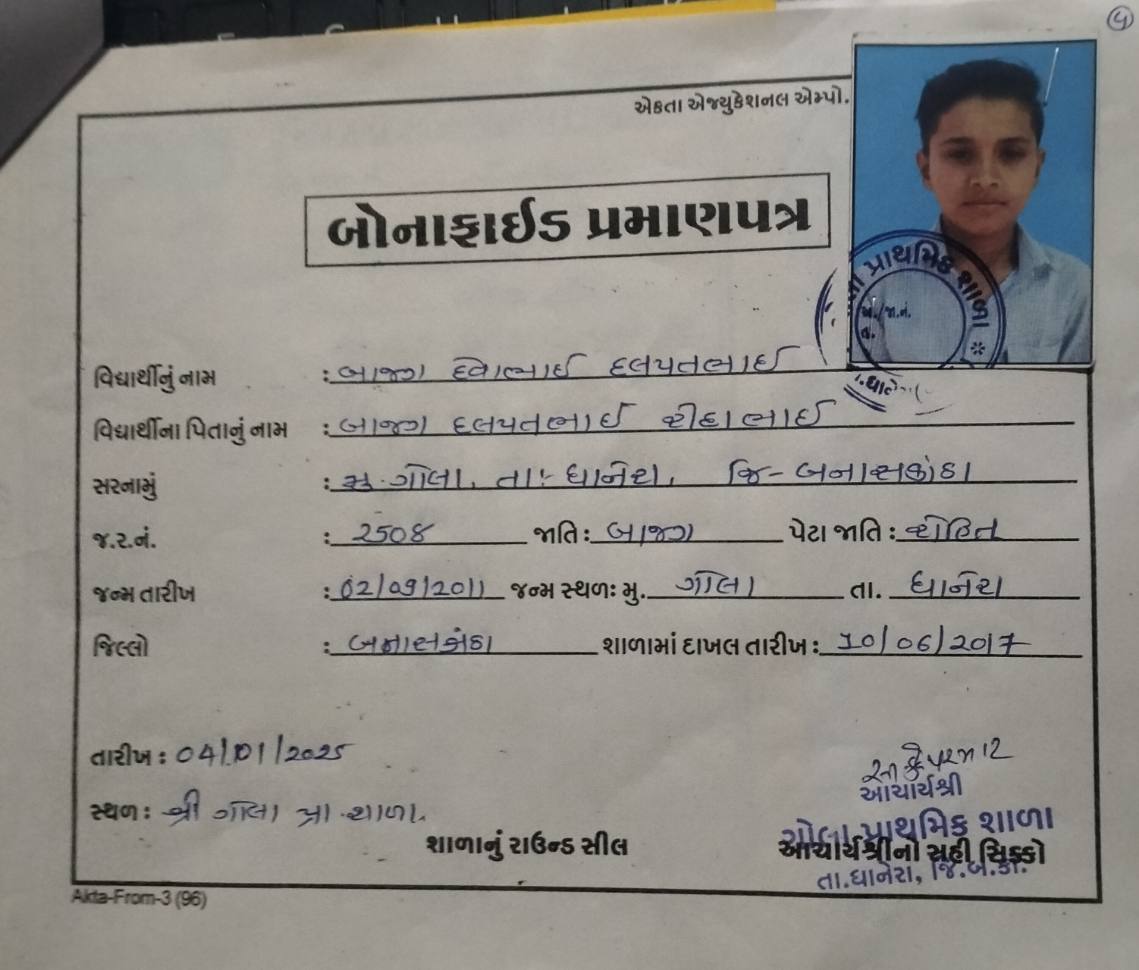 ૫
એકતા એજ્યુકેશનલ એમ્પો.
બોનાફાઈડ પ્રમાણપત્ર
પ્રાથમિક શાળા
જા.નં.
તા.
વિદ્યાર્થીનું નામ : બાજગ દલપતભાઈ
વિદ્યાર્થીના પિતાનું નામ : બાજગ દલપતભાઈ
સરનામું : મુ. ગોલા, તા:- ધાનેરા, જિ- બનાસકાંઠા
જ.ર.નં. : 2508 જાતિ : બાજગ પેટા જાતિ : રોહિત
જન્મ તારીખ : 02/09/2011 જન્મ સ્થળઃ મુ. ગોલા તા. ધાનેરા
જિલ્લો : બનાસકાંઠા શાળામાં દાખલ તારીખ : 10/06/2017
તારીખ : 04/01/2025
સ્થળ : શ્રી ગોલા પ્રા. શાળા.
આચાર્યશ્રી
ગોલા પ્રાથમિક શાળા
શાળાનું રાઉન્ડ સીલ આચાર્યશ્રીનો સહી સિક્કો
તા.ધાનેરા, જિ.બ.કાં.
Akta-From-3 (96)